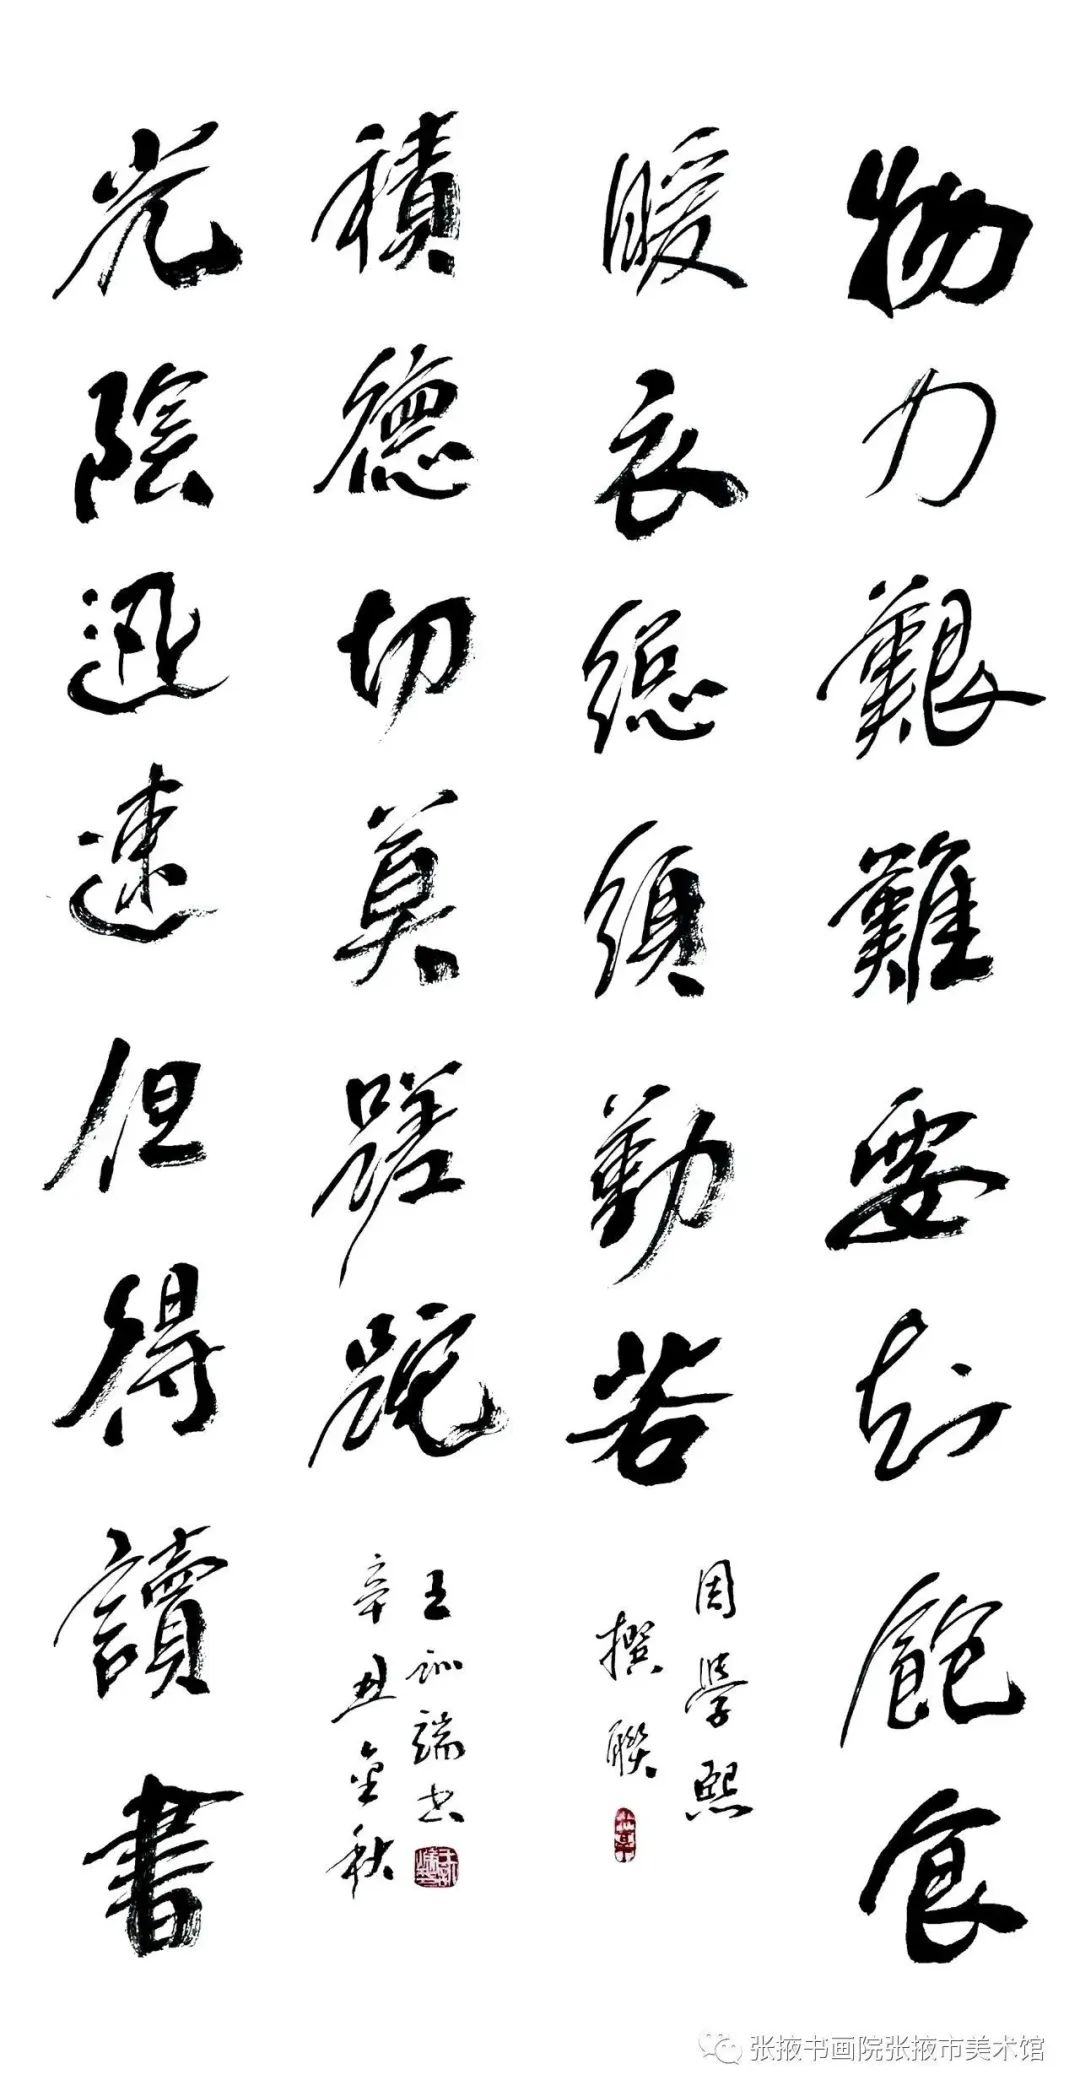 物力艱難要知飽食
暖衣總須勤苦
周學熙
撰聯
光陰迅速但得讀書
積德切莫蹉跎
辛丑金秋
王訓端书
张掖书画院张掖市美术馆